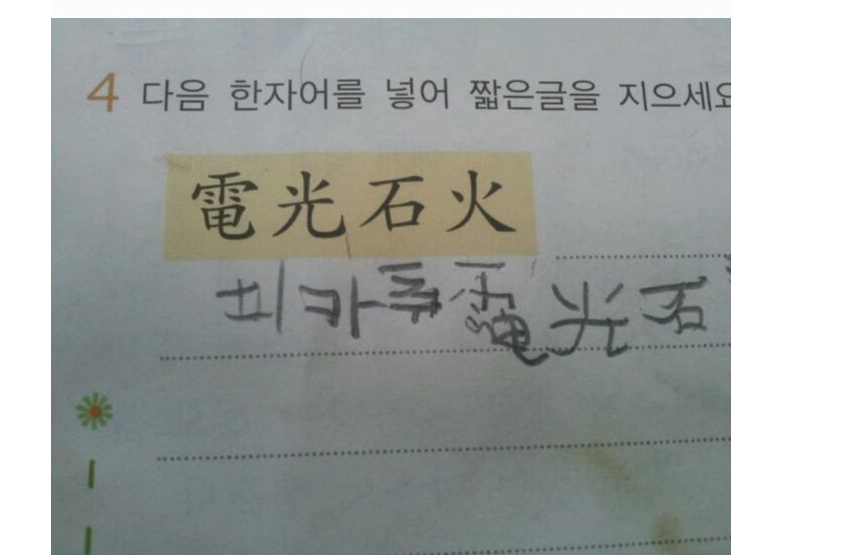 4 다음 한자어를 넣어 짧은글을 지으세요
電光石火
피카츄 電光石